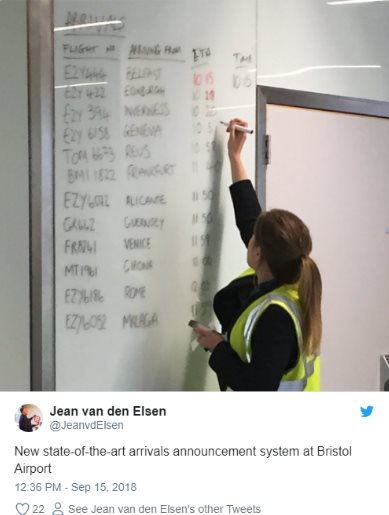 ARRIVALS
FLIGHT No ARRIVING FROM ETA TIME
EZY444 BELFAST 10 15 10 15
EZY 422 EDINBURGH 10
EZY 394 INVERNESS 10
EZY 6158 GENEVA 10
TOM 6673 REUS
BMI 1822 FRANKFURT 11
ALICANTE 11 50
GUERNSEY 11
VENICE 11
MT1961 GIRONA
EZY6186 ROME
EZY6052 MALAGA
Jean van den Elsen
@JeanvdElsen
New state-of-the-art arrivals announcement system at Bristol
Airport
12:36 PM - Sep 15, 2018
22 See Jean van den Elsen's other Tweets